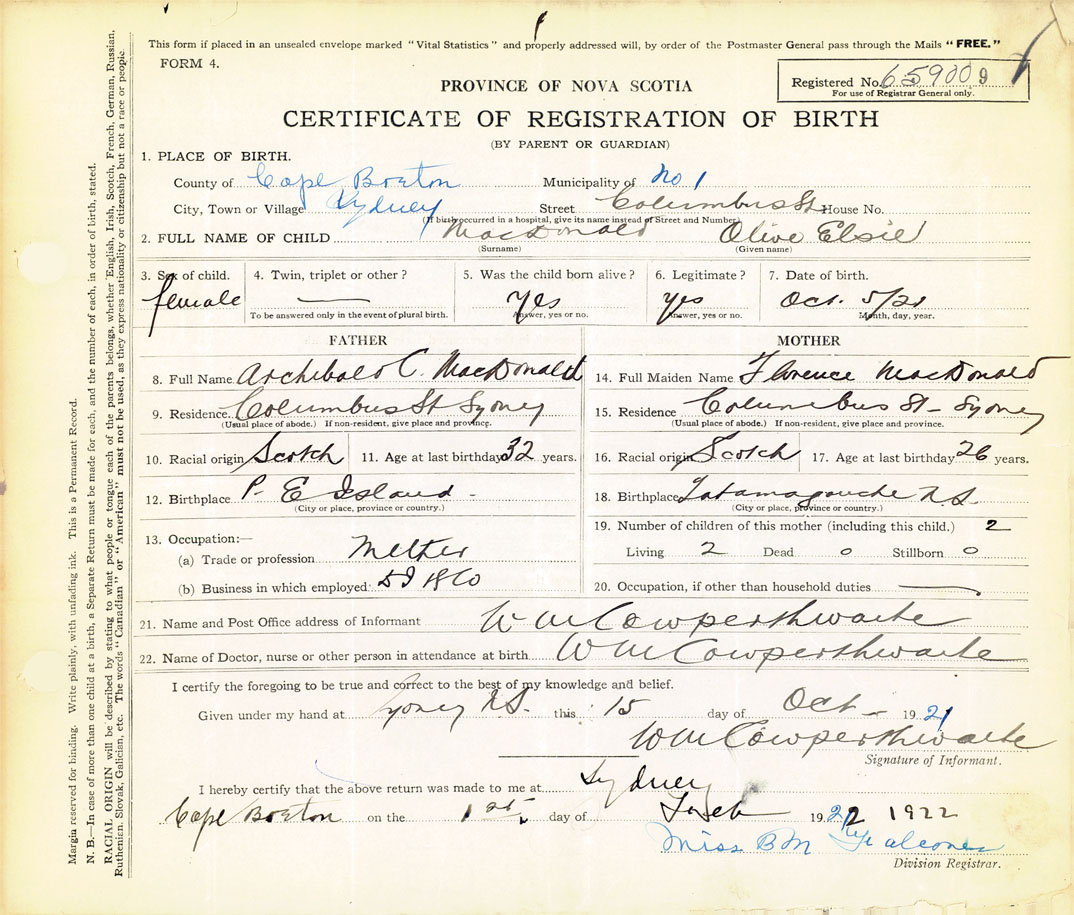 This form if placed in an unsealed envelope marked "Vital Statistics" and properly addressed will, by order of the Postmaster General pass through the Mails "FREE."
FORM 4.
PROVINCE OF NOVA SCOTIA
Registered No. 659009
For use of Registrar General only.
CERTIFICATE OF REGISTRATION OF BIRTH
(BY PARENT OR GUARDIAN)
1. PLACE OF BIRTH.
County of Cape Breton Municipality of No 1
City, Town or Village Sydney Street Columbus St House No.
(If birth occurred in a hospital, give its name instead of Street and Number)
2. FULL NAME OF CHILD MacDonald Olive Elsie
(Surname) (Given name)
3. Sex of child. 4. Twin, triplet or other? 5. Was the child born alive? 6. Legitimate? 7. Date of birth.
female — Yes yes Oct. 5/21
To be answered only in the event of plural birth. Answer, yes or no. Answer, yes or no. Month, day, year.
FATHER MOTHER
8. Full Name Archibald C. MacDonald
14. Full Maiden Name Florence MacDonald
9. Residence Columbus St Sydney
15. Residence Columbus St - Sydney
(Usual place of abode.) If non-resident, give place and province.
(Usual place of abode.) If non-resident, give place and province.
10. Racial origin Scotch 11. Age at last birthday 32 years.
16. Racial origin Scotch 17. Age at last birthday 26 years.
12. Birthplace P. E Island -
18. Birthplace Tatamagouche N.S.
(City or place, province or country.)
(City or place, province or country.)
13. Occupation:—
19. Number of children of this mother (including this child.) 2
(a) Trade or profession Melter
Living 2 Dead 0 Stillborn 0
(b) Business in which employed:
20. Occupation, if other than household duties —
21. Name and Post Office address of Informant W M Cowperthwaite
22. Name of Doctor, nurse or other person in attendance at birth W M Cowperthwaite
I certify the foregoing to be true and correct to the best of my knowledge and belief.
Given under my hand at Sydney N.S. this 15 day of Oct - 1921
W M Cowperthwaite
Signature of Informant.
I hereby certify that the above return was made to me at Sydney
Cape Breton on the 1st day of 1922 1922
Miss B M Falconer
Division Registrar.
Margin reserved for binding. Write plainly, with unfading ink. This is a Permanent Record.
N. B.—In case of more than one child at a birth, a Separate Return must be made for each, and the number of each, in order of birth, stated.
RACIAL ORIGIN will be described by stating to what people or tongue each of the parents belongs, whether English, Irish, Scotch, French, German, Russian,
Ruthenien, Slovak, Galician, etc. The words "Canadian" or "American" must not be used, as they express nationality or citizenship but not a race or people.